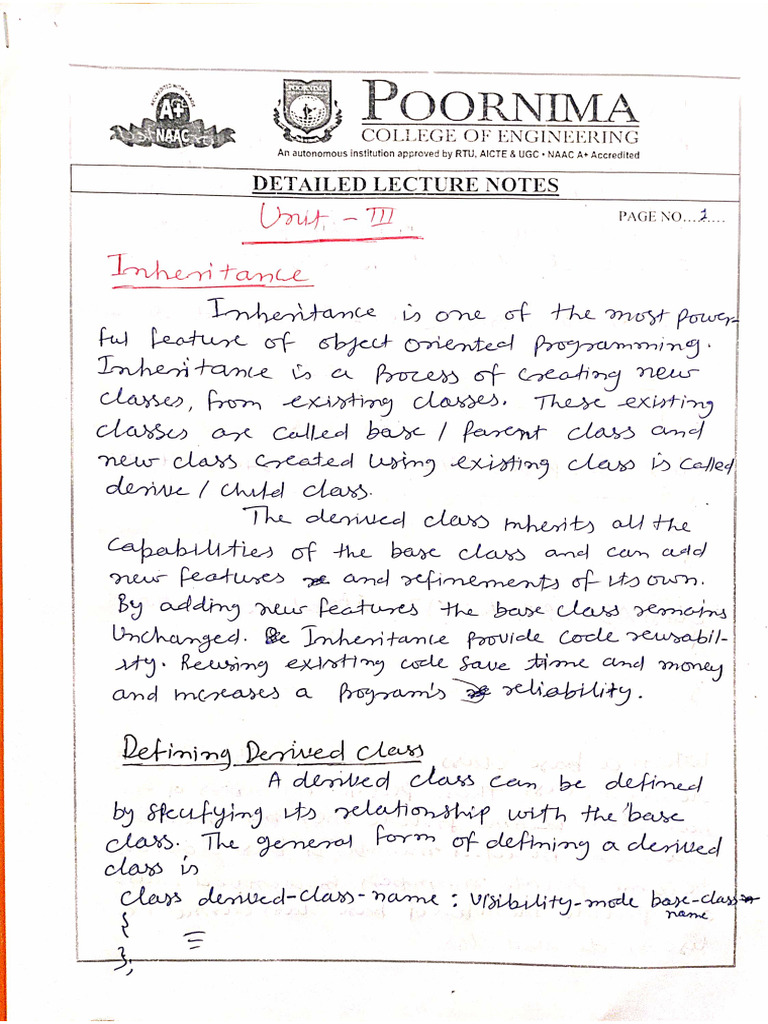 ACCREDITED WITH GRADE
A+
NAAC
POORNIMA
POORNIMA
COLLEGE OF ENGINEERING
An autonomous institution approved by RTU, AICTE & UGC • NAAC A+ Accredited
DETAILED LECTURE NOTES
Unit - III
PAGE NO...1....
Inheritance
Inheritance is one of the most power-
ful feature of object oriented programming.
Inheritance is a process of creating new
classes, from existing classes. These existing
classes are called base / parent class and
new class created using existing class is called
derive / child class.
The derived class inherits all the
capabilities of the base class and can add
new features and refinements of its own.
By adding new features the base class remains
Unchanged. Inheritance provide code reusabil-
ity. Reusing existing code save time and money
and increases a program's reliability.
Defining Derived class
A derived class can be defined
by specifying its relationship with the base
class. The general form of defining a derived
class is
class derived-class-name : visibility-mode base-class-
name
{
};